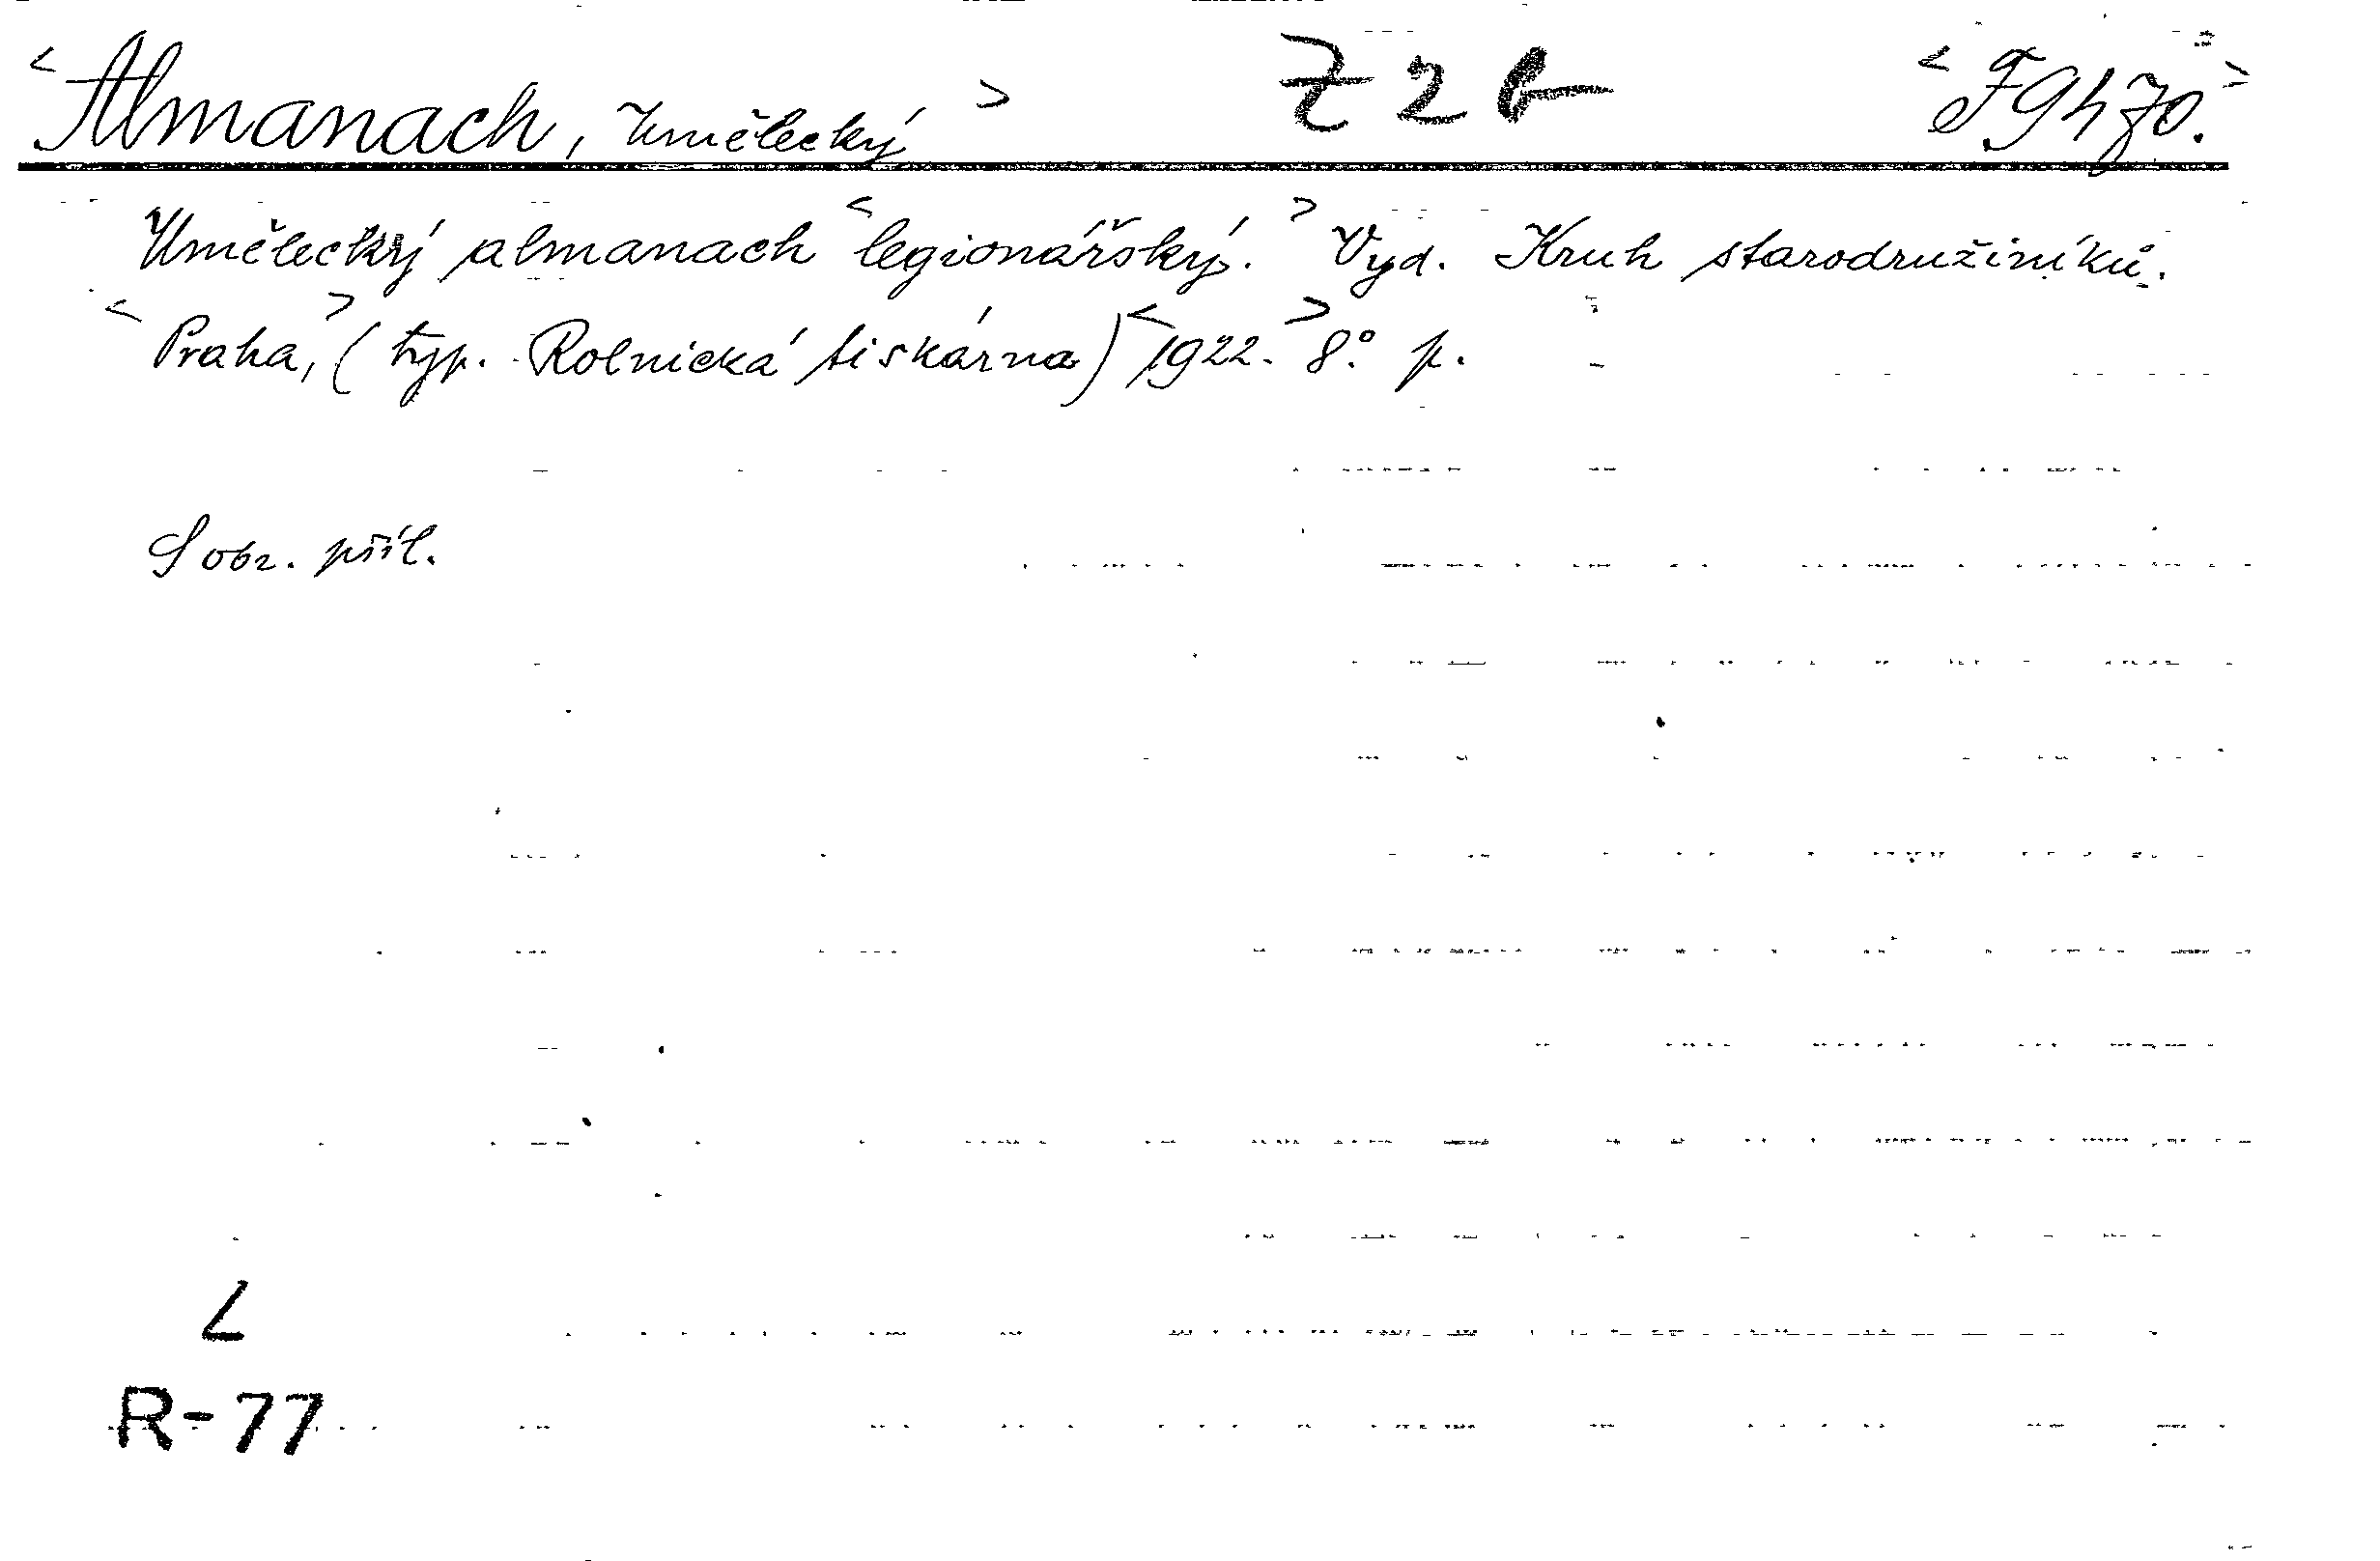 <Almanach, Umělecký> Z 2 b <F 9h70.>
Umělecký almanach <legionářský.> Vyd. Kruh starodružiníků.
<Praha,> (typ. Rolnická tiskárna) <1922.> 8°. p.
S obr. příl.
L
R-77